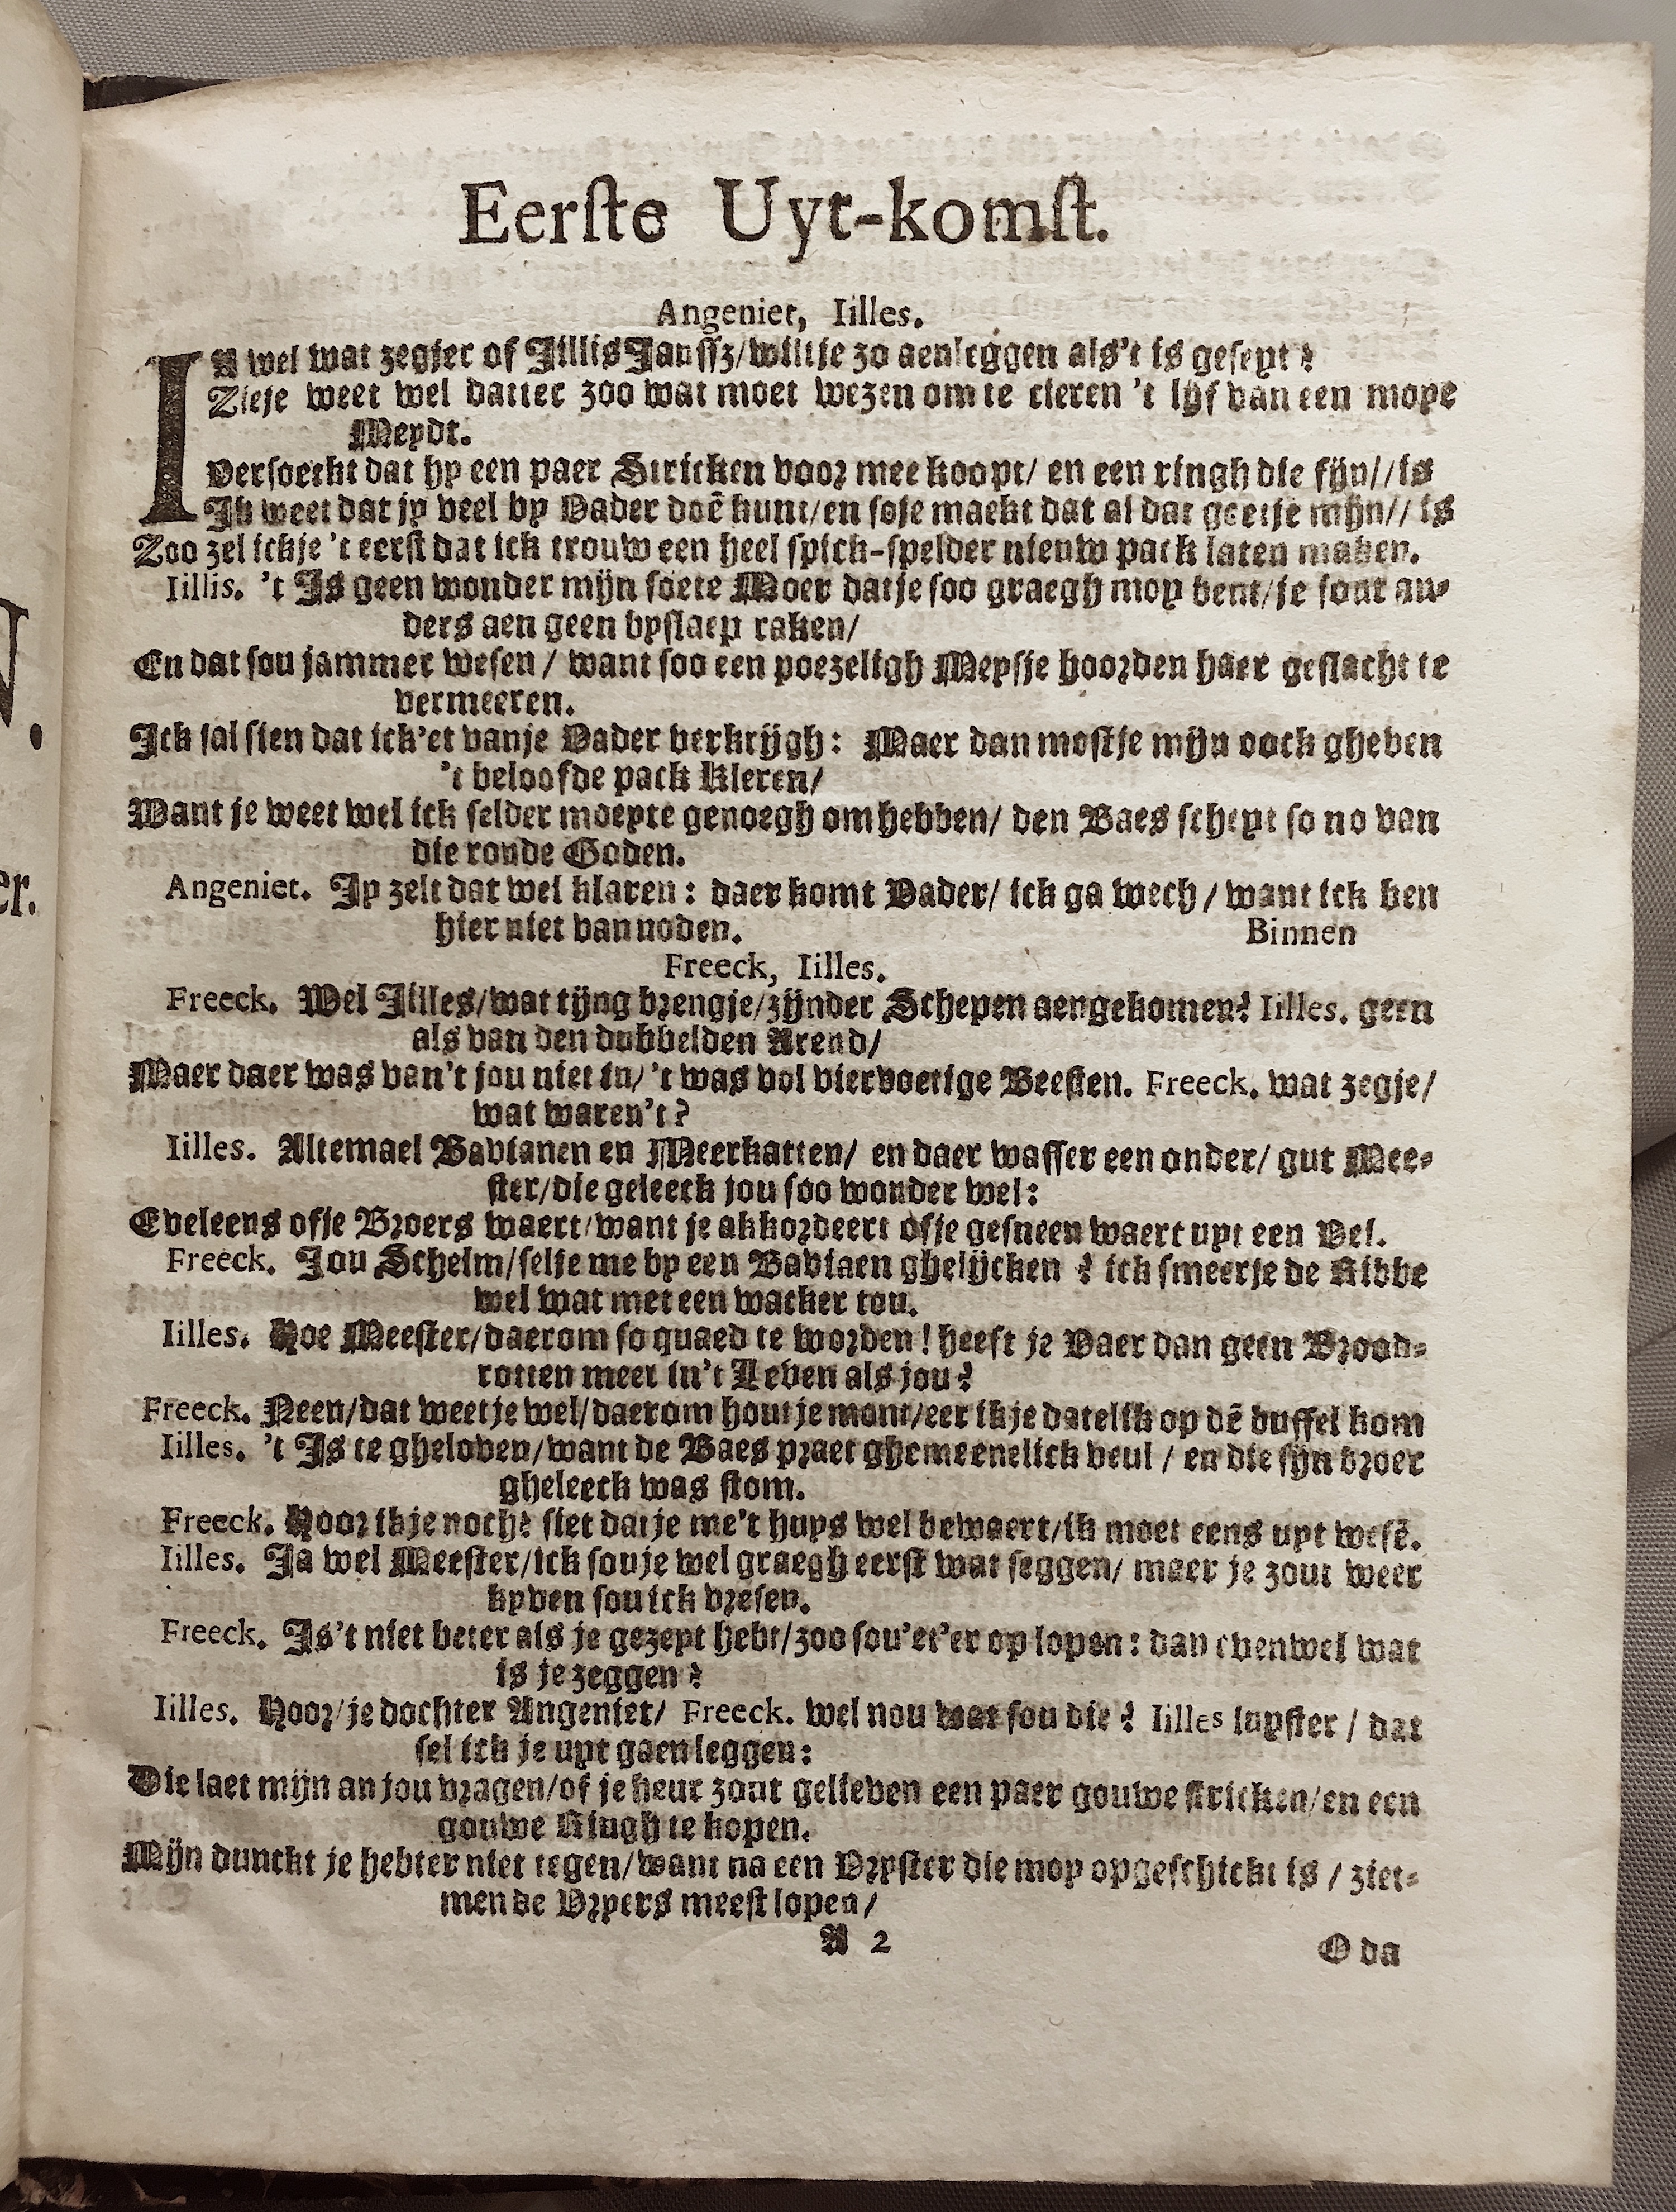 Eerſte Uyt-komſt.
Angeniet, Iilles.
IA wel wat zegjer of Jillis Janſſz/ wiltje zo aenleggen als't is geseyt?
Zieje weet wel datter zoo wat moet wezen om te cieren 't lijf van een moye
Meydt.
Versoeckt dat hy een paer Stricken voor mee koopt/ en een ringh die fijn// is
Ik weet dat jy veel by Vader doē kunt/ en soje maekt dat al dat goetje mijn// is
Zoo zel ickje 't eerst dat ick trouw een heel spick-spelder nieuw pack laten maken.
Iillis. 't Is geen wonder mijn soete Moer datje soo graegh moy bent/ je sout an-
ders aen geen byslaep raken/
En dat sou jammer wesen/ want soo een poezeligh Meysje hoorden haer geslacht te
vermeeren.
Ick sal sien dat ick'et vanje Vader verkrijgh: Maer dan mostje mijn oock gheven
't beloofde pack Kleren/
Want je weet wel ick selder moeyte genoegh om hebben/ den Baes scheyt so no van
die ronde Goden.
Angeniet. Jy zelt dat wel klaren: daer komt Vader/ ick ga wech/ want ick ben
hier niet van noden. Binnen
Freeck, Iilles.
Freeck. Wel Jilles/ wat tijng brengje/ zijnder Schepen aengekomen? Iilles. geen
als van den dubbelden Arend/
Maer daer was van't jou niet in/ 't was vol viervoetige Beesten. Freeck. wat zegje/
wat waren't?
Iilles. Altemael Bavianen en Meerkatten/ en daer wasser een onder/ gut Mee-
ster/ die geleeck jou soo wonder wel:
Eveleens ofje Broers waert/ want je akkordeert ofje gesneen waert uyt een Vel.
Freeck. Jou Schelm/ selje me by een Baviaen ghelijcken? ick smeerje de Ribbe
wel wat met een wacker tou.
Iilles. Hoe Meester/ daerom so quaed te worden! heeft je Vaer dan geen Brood-
rotten meer in't Leven als jou?
Freeck. Neen/ dat weetje wel/ daerom hout je mont/ eer ik je datelik op dē duffel kom
Iilles. 't Is te gheloven/ want de Baes praet ghemeenelick veul/ en die sijn broer
gheleeck was stom.
Freeck. Hoor ik je noch? siet datje me't huys wel bewaert/ ik moet eens uyt wesē.
Iilles. Ja wel Meester/ ick souje wel graegh eerst wat seggen/ maer je zout weer
kyven sou ick vresen.
Freeck. Is't niet beter als je gezeyt hebt/ zoo sou'et'er op lopen: dan evenwel wat
is je zeggen?
Iilles. Hoor/ je dochter Angeniet/ Freeck. wel nou wat sou die? Iilles luyster/ dat
sel ick je uyt gaen leggen:
Die laet mijn an jou vragen/ of je heur zout gelieven een paer gouwe stricken/ en een
gouwe Ringh te kopen.
Mijn dunckt je hebter niet tegen/ want na een Vryster die moy opgeschickt is/ ziet-
men de Vryers meest lopen/
A 2 O da